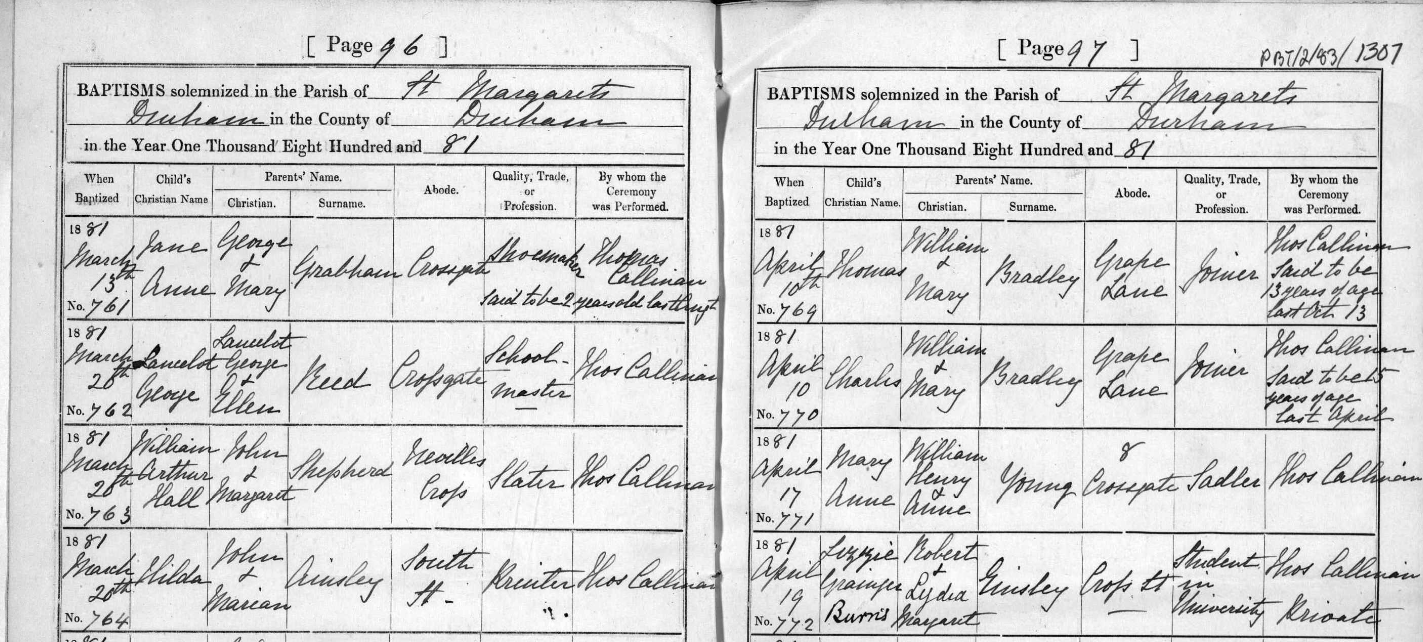 [ Page 96 ]
BAPTISMS solemnized in the Parish of St Margarets
Durham in the County of Durham
in the Year One Thousand Eight Hundred and 81
When Baptized
Child's Christian Name
Parents' Name.
Christian.
Surname.
Abode.
Quality, Trade, or Profession.
By whom the Ceremony was Performed.
1881
March
13th
No. 761
Jane
Anne
George
&
Mary
Grabham
Crossgate
Shoemaker
Thomas
Callinan
Said to be 2 years old last Augt
1881
March
20th
No. 762
Lancelot
George
Lancelot
George
&
Ellen
Reed
Crossgate
School-
master
Thos Callinan
1881
March
20th
No. 763
William
Arthur
Hall
John
&
Margaret
Shepherd
Nevilles
Cross
Slater
Thos Callinan
1881
March
20th
No. 764
Hilda
John
&
Marian
Ainsley
South
St-
Printer
Thos Callinan
[ Page 97 ]
PBT/2/83/1307
BAPTISMS solemnized in the Parish of St Margarets
Durham in the County of Durham
in the Year One Thousand Eight Hundred and 81
When Baptized
Child's Christian Name.
Parents' Name.
Christian.
Surname.
Abode.
Quality, Trade, or Profession.
By whom the Ceremony was Performed.
1881
April
10th
No. 769
Thomas
William
&
Mary
Bradley
Grape
Lane
Joiner
Thos Callinan
Said to be
13 years of age
last Oct 13
1881
April
10
No. 770
Charles
William
&
Mary
Bradley
Grape
Lane
Joiner
Thos Callinan
Said to be 15
years of age
last April
1881
April
17
No. 771
Mary
Anne
William
Henry
&
Anne
Young
8
Crossgate
Sadler
Thos Callinan
1881
April
19
No. 772
Lizzie
Grainger
Burris
Robert
&
Lydia
Margaret
Cross St
Student
in
University
Thos Callinan
Private